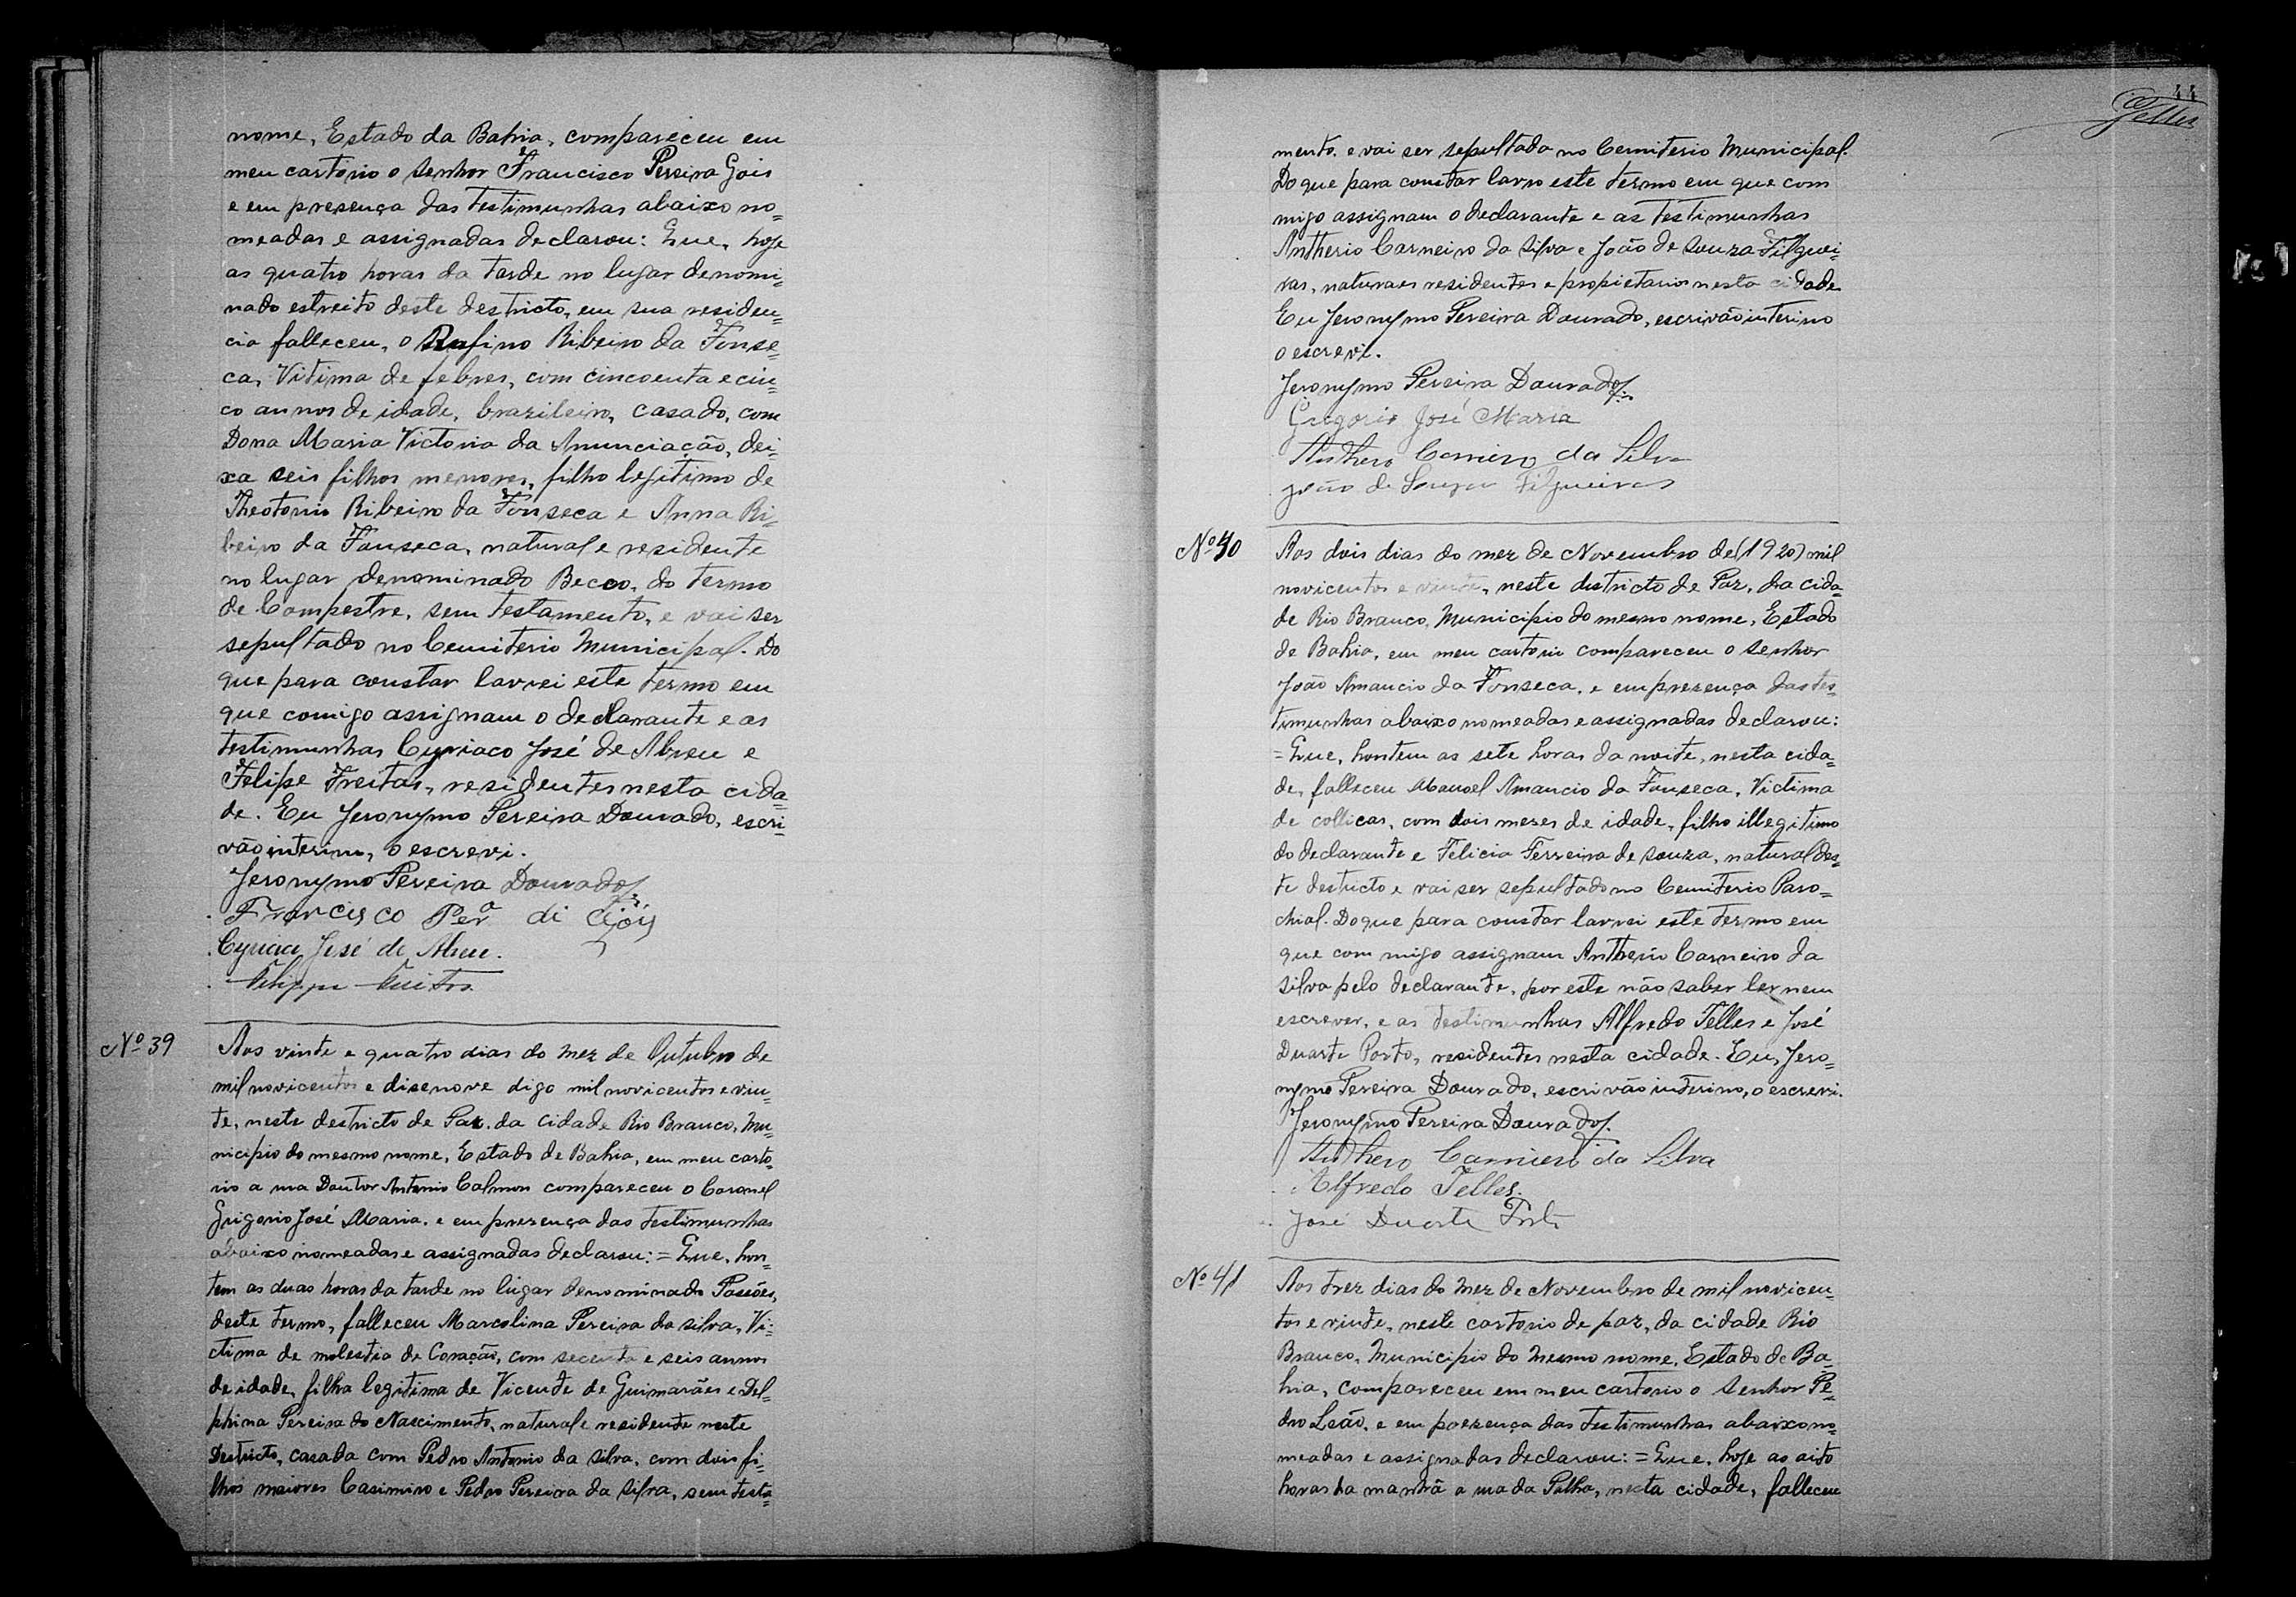 nome, Estado da Bahia, compareceu em
meu cartorio o Senhor Francisco Pereira Gois
e em presença das testimunhas abaixo no=
meadas e assignadas declarou: Que, hoje
as quatro horas da tarde no lugar denomi=
nado estreito deste destricto, em sua residen=
cia falleceu, o Rufino Ribeiro da Fonse=
ca, Vitima de febres, com cincoenta e cin=
co annos de idade, brazileiro, casado, com
Dona Maria Victoria da Anunciação, dei=
xa seis filhos menores, filho legitimo de
Theotonio Ribeiro da Fonseca e Anna Ri=
beiro da Fonseca, natural e residente
no lugar denominado Becco, do termo
de Campestre, sem testamento, e vai ser
sepultado no Cemiterio Municipal. Do
que para constar lavrei este termo em
que comigo assignam o declarante e as
testimunhas Cyriaco José de Abreu e
Felipe Freitas, residentes nesta cida=
de. Eu Jeronymo Pereira Dourado, escri=
vão interino, o escrevi.
Jeronymo Pereira Dourado
Francisco Perª di Gois
Cyriaco José de Abreu.
Felippe Freitas
Nº 39
Aos vinte e quatro dias do mez de Outubro de
mil novicentos e disenove digo mil novicentos e vin=
te, neste destricto de Paz, da cidade Rio Branco, Mu=
nicipio do mesmo nome, Estado de Bahia, em meu carto=
rio a rua Doutor Antonio Calmon compareceu o Coronel
Grigorio José Maria, e em presença das testimunhas
abaixo nomeadas e assignadas declarou: = Que, hon=
tem as duas horas da tarde no lugar denominado Passões,
deste termo, falleceu Marcolina Pereira da silva, Vi=
ctima de molestia de Coração, com secenta e seis annos
de idade, filha legitima de Vicente de Guimarães e Del=
phina Pereira do Nascimento, natural e residente neste
Destricto, casada com Pedro Antonio da Silva, com dois fi=
lhos maiores Casimiro e Pedro Pereira da Silva, sem testa=
44
Telles
mento, e vai ser sepultada no Cemiterio Municipal.
Do que para constar lavro este termo em que com
migo assignam o declarante e as testimunhas
Antherio Carneiro da Silva e João de Souza Filguei=
ras, naturaes residentes e propietarios nesta cidade
Eu Jeronymo Pereira Dourado, escrivão interino
o escrevi.
Jeronymo Pereira Dourado
Gregorio José Maria
Anthero Carneiro da Silva
João de Souza Filgueiras
Nº 40
Aos dois dias do mez de Novembro de (1920) mil
novicentos e vinte, neste destricto de Paz, da cida=
de Rio Branco, Municipio do mesmo nome, Estado
de Bahia, em meu cartorio compareceu o Senhor
João Amancio da Fonseca, e em presença das tes=
timunhas abaixo nomeadas e assignadas declarou:
= Que, hontem as sete horas da noite, nesta cida=
de, falleceu Manoel Amancio da Fonseca, Victima
de collicas, com dois mezes de idade, filho illegitimo
do declarante e Felicia Ferreira de souza, natural des=
te destricto e vai ser sepultado no Cemiterio Paro=
chial. Do que para constar lavrei este termo em
que com migo assignam Antherio Carneiro da
Silva pelo declarante, por este não saber ler nem
escrever, e as testimunhas Alfredo Telles e José
Duarte Porto, residentes nesta cidade. Eu, Jero=
nymo Pereira Dourado, escrivão interino, o escrevi.
Jeronymo Pereira Dourado
Anthero Carneiro da Silva
Alfredo Telles.
José Duarte Porto
Nº 41
Aos trez dias do mez de Novembro de mil novicen=
tos e vinte, neste cartorio de paz, da cidade Rio
Branco, Municipio do Mesmo nome, Estado de Ba=
hia, compareceu em meu cartorio o Senhor Pe=
dro Leão, e em presença das testimunhas abaixo no=
meadas e assignadas declarou: = Que, hoje as oito
horas da manhã a rua da Palha, nesta cidade, falleceu